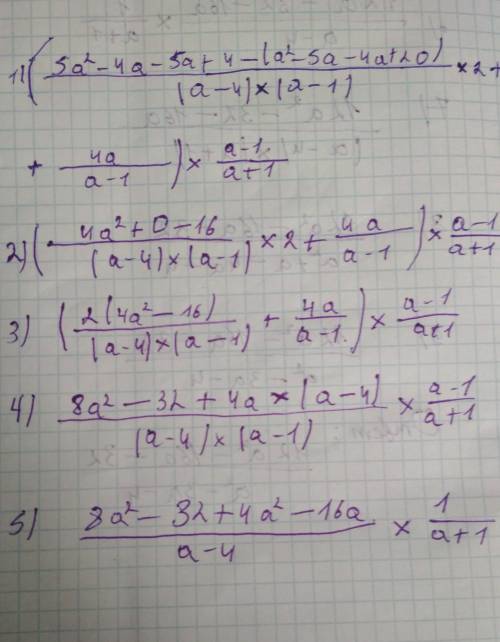 1) ( (5a² - 4a - 5a + 4 - (a² - 5a - 4a + 20)) / ((a-4) × (a-1)) × 2 +
+ 4a / (a-1) ) × (a-1) / (a+1)
2) ( (4a² + 0 - 16) / ((a-4) × (a-1)) × 2 + 4a / (a-1) ) × (a-1) / (a+1)
3) ( 2(4a² - 16) / ((a-4) × (a-1)) + 4a / (a-1) ) × (a-1) / (a+1)
4) (8a² - 32 + 4a × (a-4)) / ((a-4) × (a-1)) × (a-1) / (a+1)
5) (8a² - 32 + 4a² - 16a) / (a-4) × 1 / (a+1)